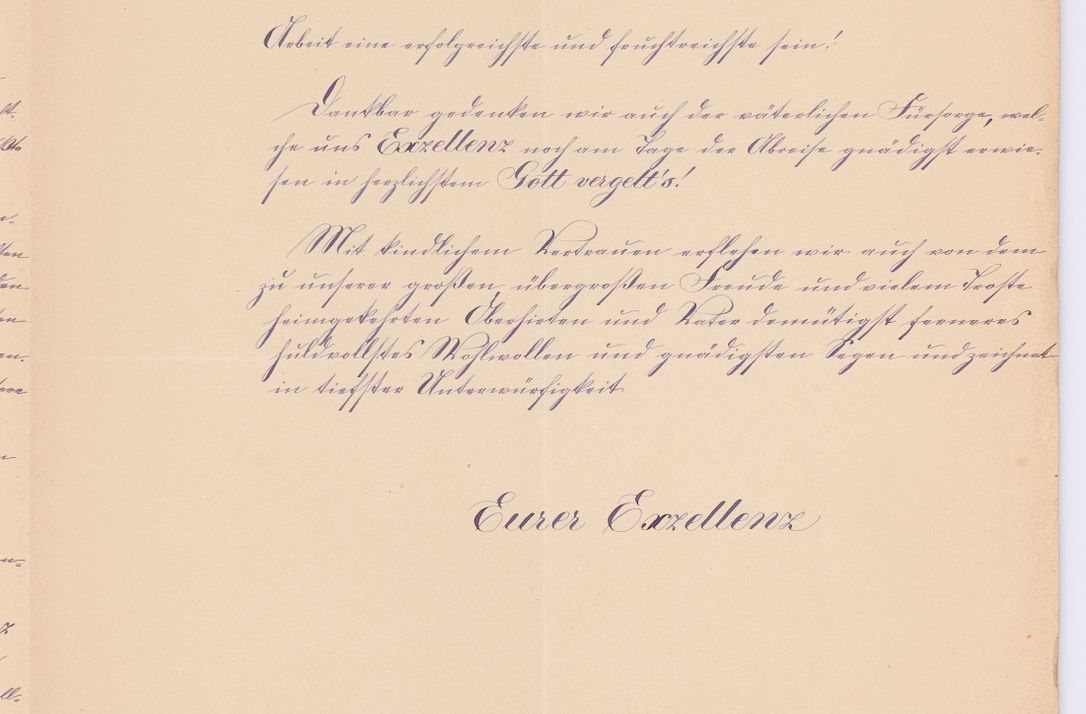 Arbeit eine erfolgreichste und fruchtreichste sein!
Dankbar gedenken wir auch der väterlichen Fürsorge, wel-
che uns Exzellenz noch am Tage der Abreise gnädigst erwie-
sen in herzlichstem Gott vergelt's!
Mit kindlichem Vertrauen erflehen wir auch von dem
zu unserer großen, übergroßen Freude und vielem Troste
heimgekehrten Oberhirten und Vater demütigst ferneres
huldvollstes Wohlwollen und gnädigsten Segen und zeichnet
in tiefster Unterwürfigkeit
Eurer Exzellenz